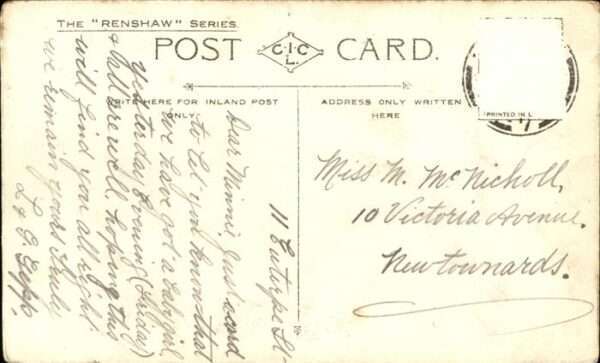 THE "RENSHAW" SERIES.
POST CARD.
C.I.C
L.
WRITE HERE FOR INLAND POST
ONLY.
ADDRESS ONLY WRITTEN
HERE
PRINTED IN
11 Euterpe St
Dear Minnie, Just a card
to let you know that
we have got a baby girl
yesterday evening (Friday)
& all are well, hoping this
will find you all right
we remain yours truly
L & E.
Miss M. McNicholl,
10 Victoria Avenue.
Newtownards.